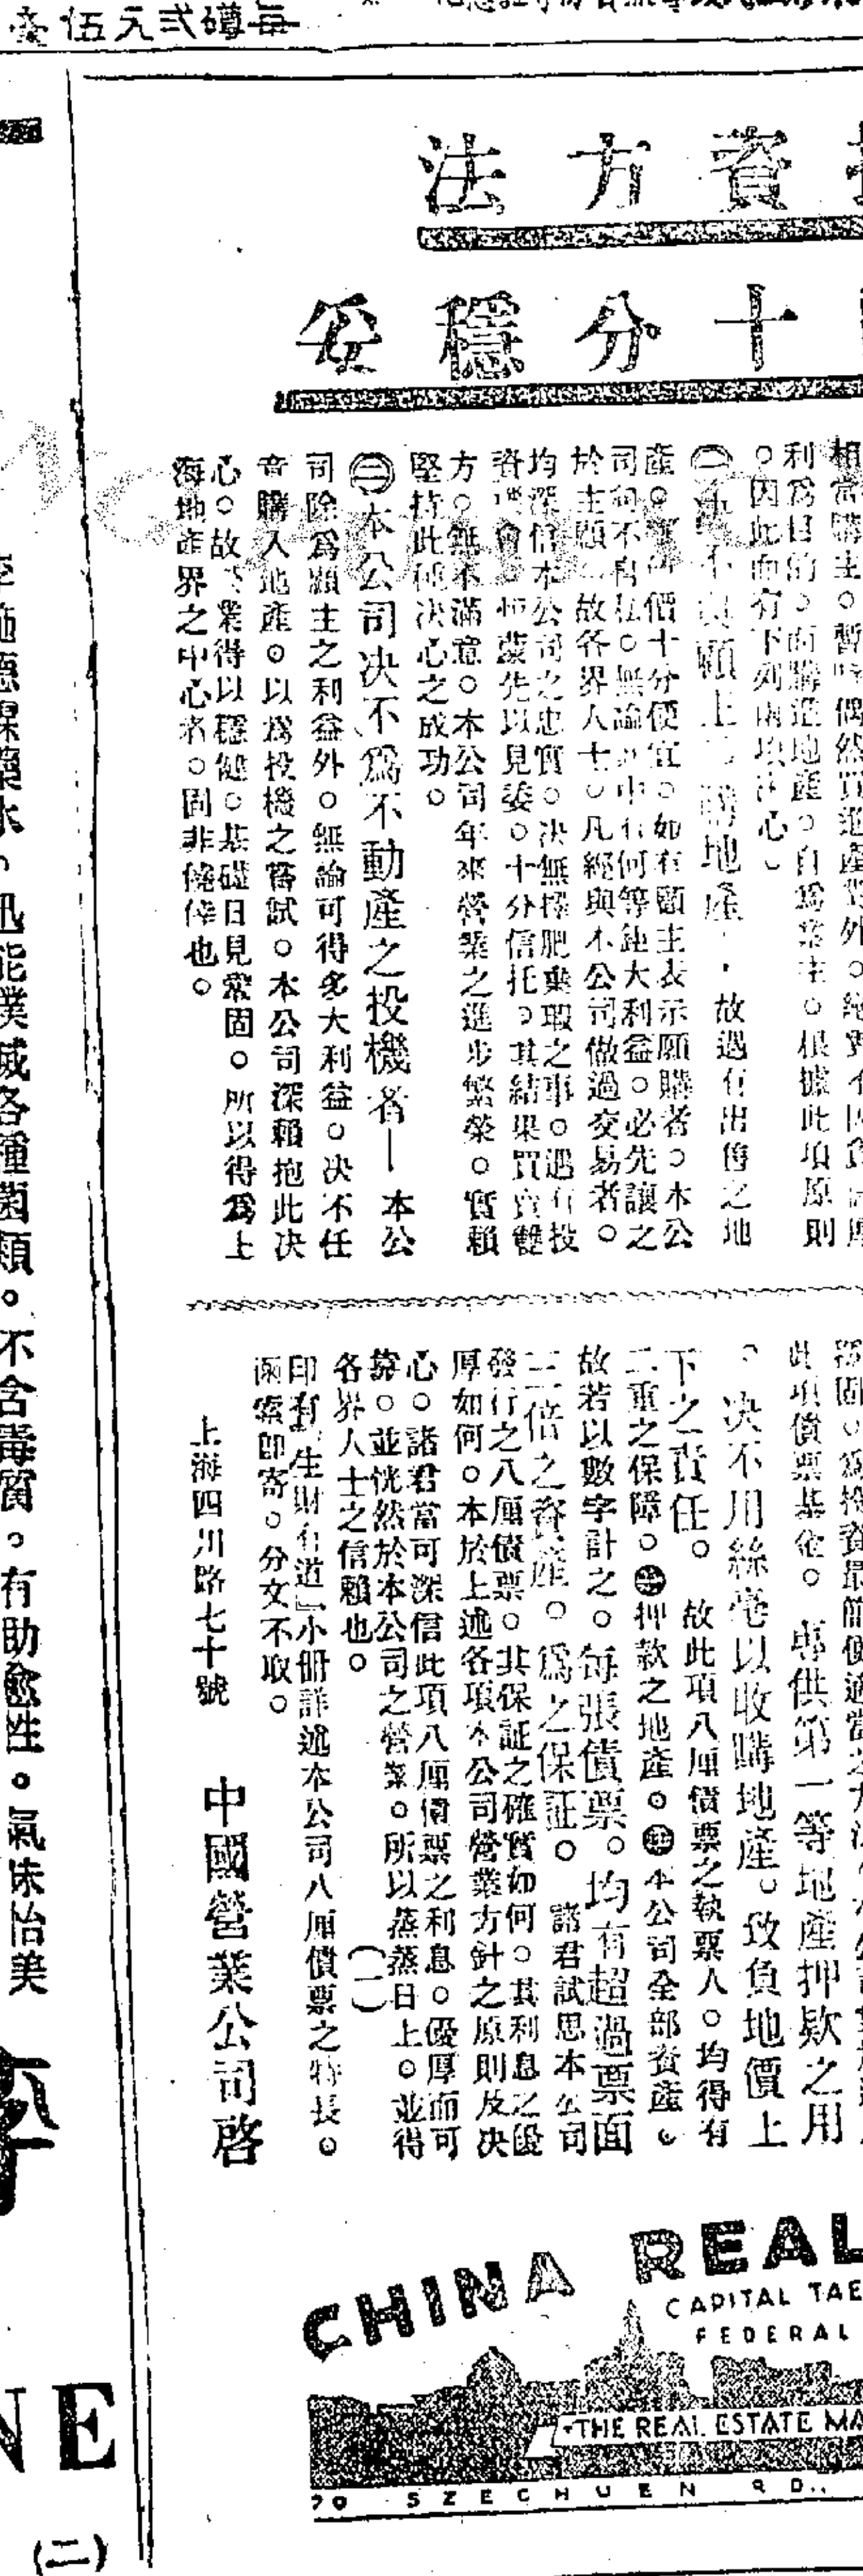 每罇弍元伍毫
資方法
十分穩妥
相當購主。暫時偶然買進產業外。
利爲目的。而購進地產。自爲業主。根據此項原則
。因此而有下列兩項決心。
購地產
故遇有出售之地
產。價十分便宜。如有顧主表示願購者。本公
司向不自私。無論何等鉅大利益。必先讓之
於主顧。故各界人士。凡經與本公司做過交易者。
均深信本公司之忠實。决無擇肥棄瑕之事。遇有投
資機會。恒蒙先以見委。十分信托。其結果買賣雙
方。無不滿意。本公司年來營業之進步繁榮。實賴
堅持此種决心之成功。
㊁本公司决不爲不動產之投機者—本公
司除爲顧主之利益外。無論可得多大利益。决不任
意購入地產。以爲投機之嘗試。本公司深賴抱此决
心。故營業得以穩健。基礎日見鞏固。所以得爲上
海地產界之中心者。固非僥倖也。
此項債票基金。專供第一等地產押欵之用
。决不用絲毫以收購地產。致負地價上
下之責任。故此項八厘債票之執票人。均得有
二重之保障。押款之地產。本公司全部資產。
故若以數字計之。每張債票。均有超過票面
三倍之資產。爲之保証。諸君試思本公司
發行之八厘債票。其保証之確實如何。其利息之優
厚如何。本於上述各項本公司營業方針之原則及决
心。諸君當可深信此項八厘債票之利息。優厚而可
靠。並恍然於本公司之營業。所以蒸蒸日上。並得
各界人士之信賴也。(一)
印有「生財有道」小冊詳述本公司八厘債票之特長。
函索即寄。分文不取。
上海四川路七十號
中國營業公司啓
CHINA REAL
CAPITAL TAE
FEDERAL
THE REAL ESTATE MA
70 SZECHUEN RD.,
迅能撲滅各種菌類。不含毒質。有助愈性。氣味怡美
NE
(二)